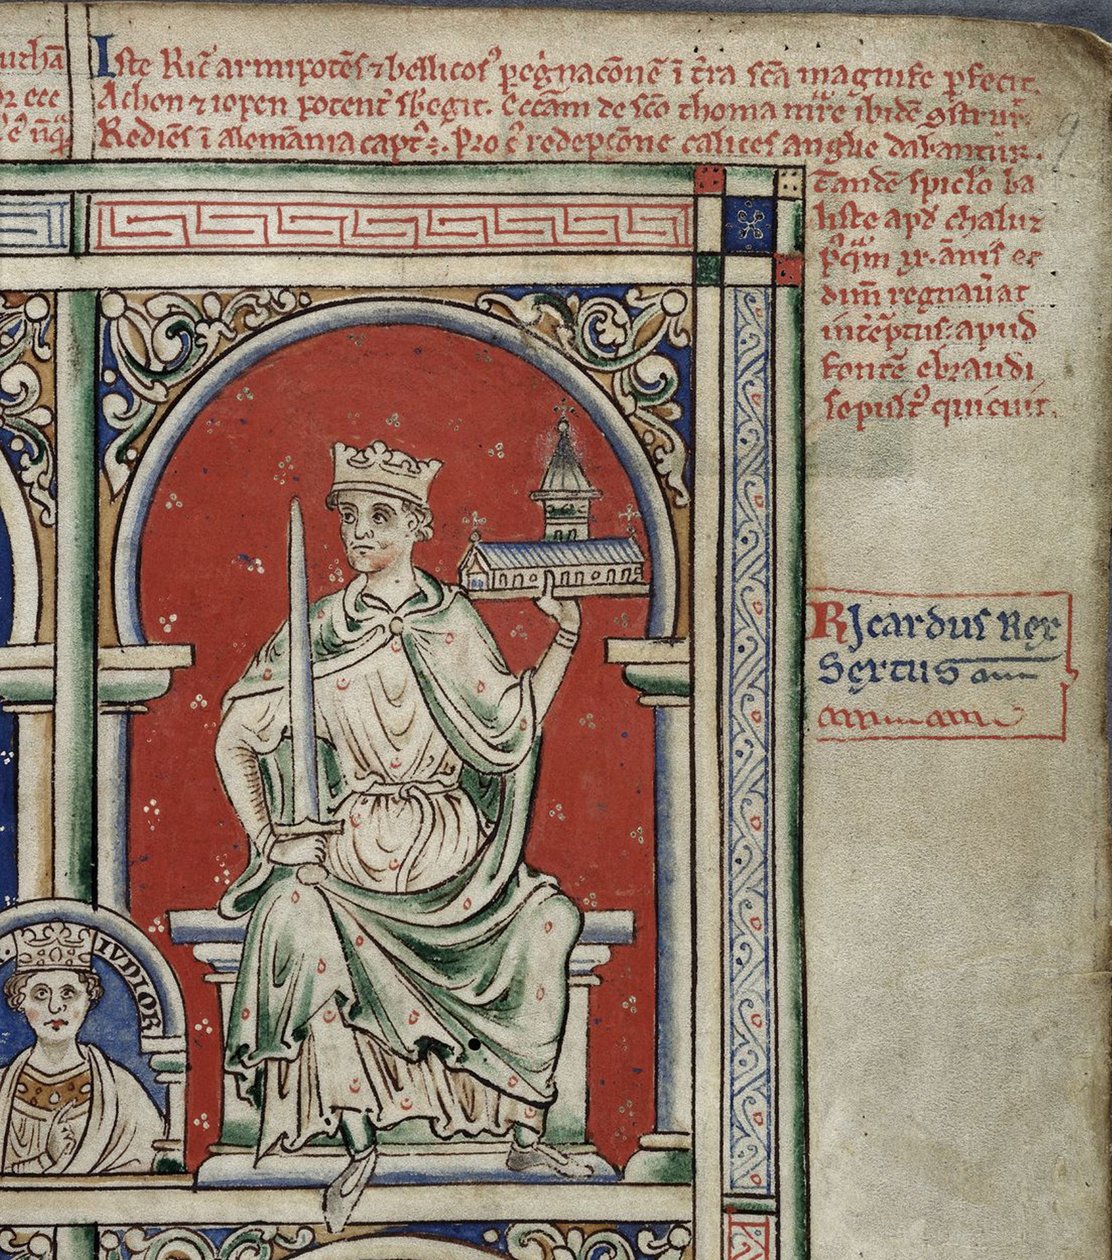 Iste Ric̃ armipotẽs ⁊ bellicosꝰ pegͥnac̃onẽ ĩ t̃ra sc̃a magnifice ꝑfecit.
Achon ⁊ iopen potent̃ sbegit. Eccãm de sc̃o thoma mr̃e ibidẽ
Rediẽs ĩ alemãnia capt̃ Pro redepc̃one calices anglie dabantur.
Tandẽ spiclo ba
liste apd̕ chaluz
annis et
dim̃ regnau̾at
int̾emptus: apud
fontẽ ebraudi
sepultꝰ quieuit.
Ricardus Rex
Sextus
IVNIOR
9